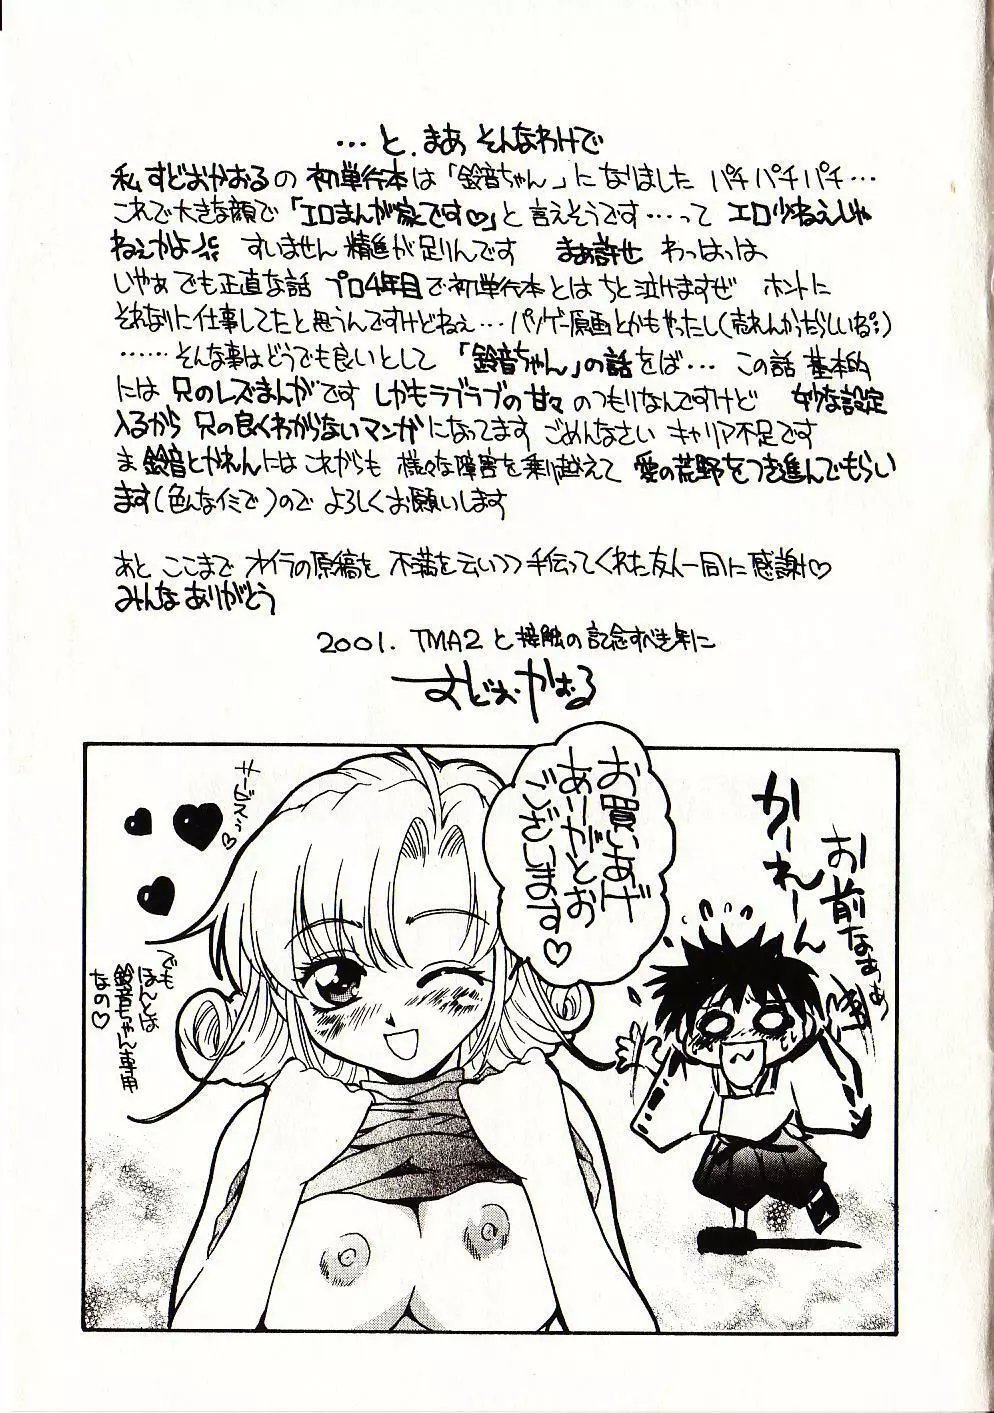 …と、まあ そんなわけで
私 すどおかおるの 初単行本は「鈴音ちゃん」になりました パチパチパチ…
これで大きな顔で「エロまんが家です♡」と言えそうです…って エロ少ねえじゃ
ねぇかよ すいません 精進が足りんです まぁ許せ わっはっは
いやぁでも正直な話 プロ4年目で初単行本とは ちと泣けますぜ ホントに
それなりに仕事してたと思うんですけどねぇ…パソゲー原画とかもやったし(売れんかったらしいね)
……そんな事はどうでも良いとして「鈴音ちゃん」の話をば… この話 基本的
には 兄のレズまんがです しかもラブラブの甘々のつもりなんですけど 妙な設定
入るから 兄の良くわからないマンガになってます ごめんなさい キャリア不足です
ま 鈴音とかれんには これからも 様々な障害を乗り越えて 愛の荒野をつき進んでもらい
ます(色んなイミで)ので よろしくお願いします
あと ここまで オイラの原稿を 不満を云いつつ手伝ってくれた友人一同に感謝♡
みんなありがとう
2001. TMA2と接触の記念すべき年に
すどお・かおる
お買いあげ
ありがとお
ございます♡
サービスぅ♡
でも
ほんとは
鈴音ちゃん専用
なの♡
かーれーん
お前なぁぁ